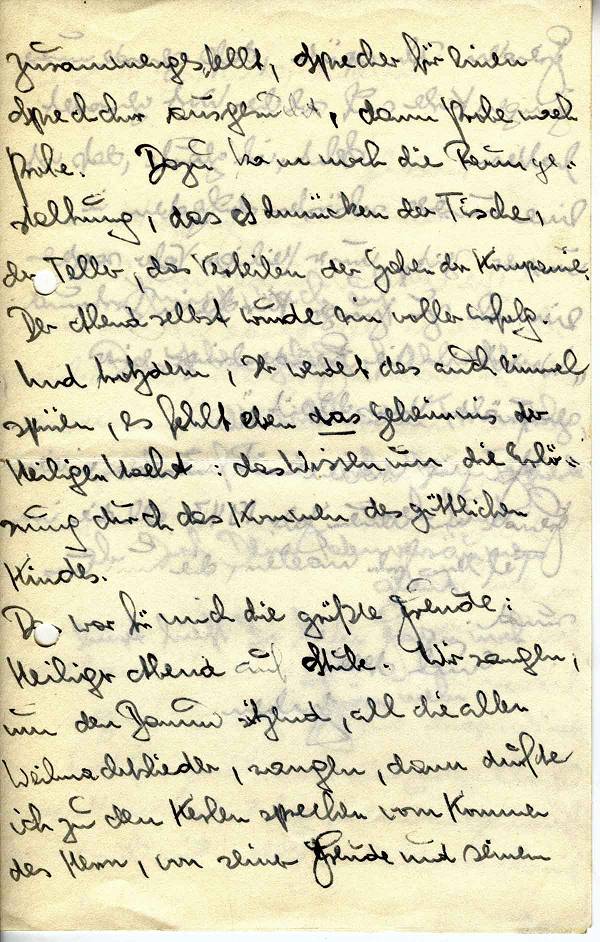 zusammengestellt, Sprecher für einen
Sprechchor ausgesucht, dann Probe nach
Probe. Dazu kam noch die Raumge-
staltung, das Schmücken der Tische,
der Teller, das Verteilen der Gaben der Kompanie.
Der Abend selbst wurde ein voller Erfolg.
Und trotzdem, Ihr werdet das auch einmal
spüren, es fehlt eben das Geheimnis der
Heiligen Nacht: das Wissen um die Erlö-
sung durch das Kommen des göttlichen
Kindes.
Das war für mich die größte Freude:
Heiliger Abend auf Stube. Wir sangen,
um den Baum sitzend, all die alten
Weihnachtslieder, sangen, dann durfte
ich zu den Kerlen sprechen vom Kommen
des Herrn, von seiner Freude und seinem